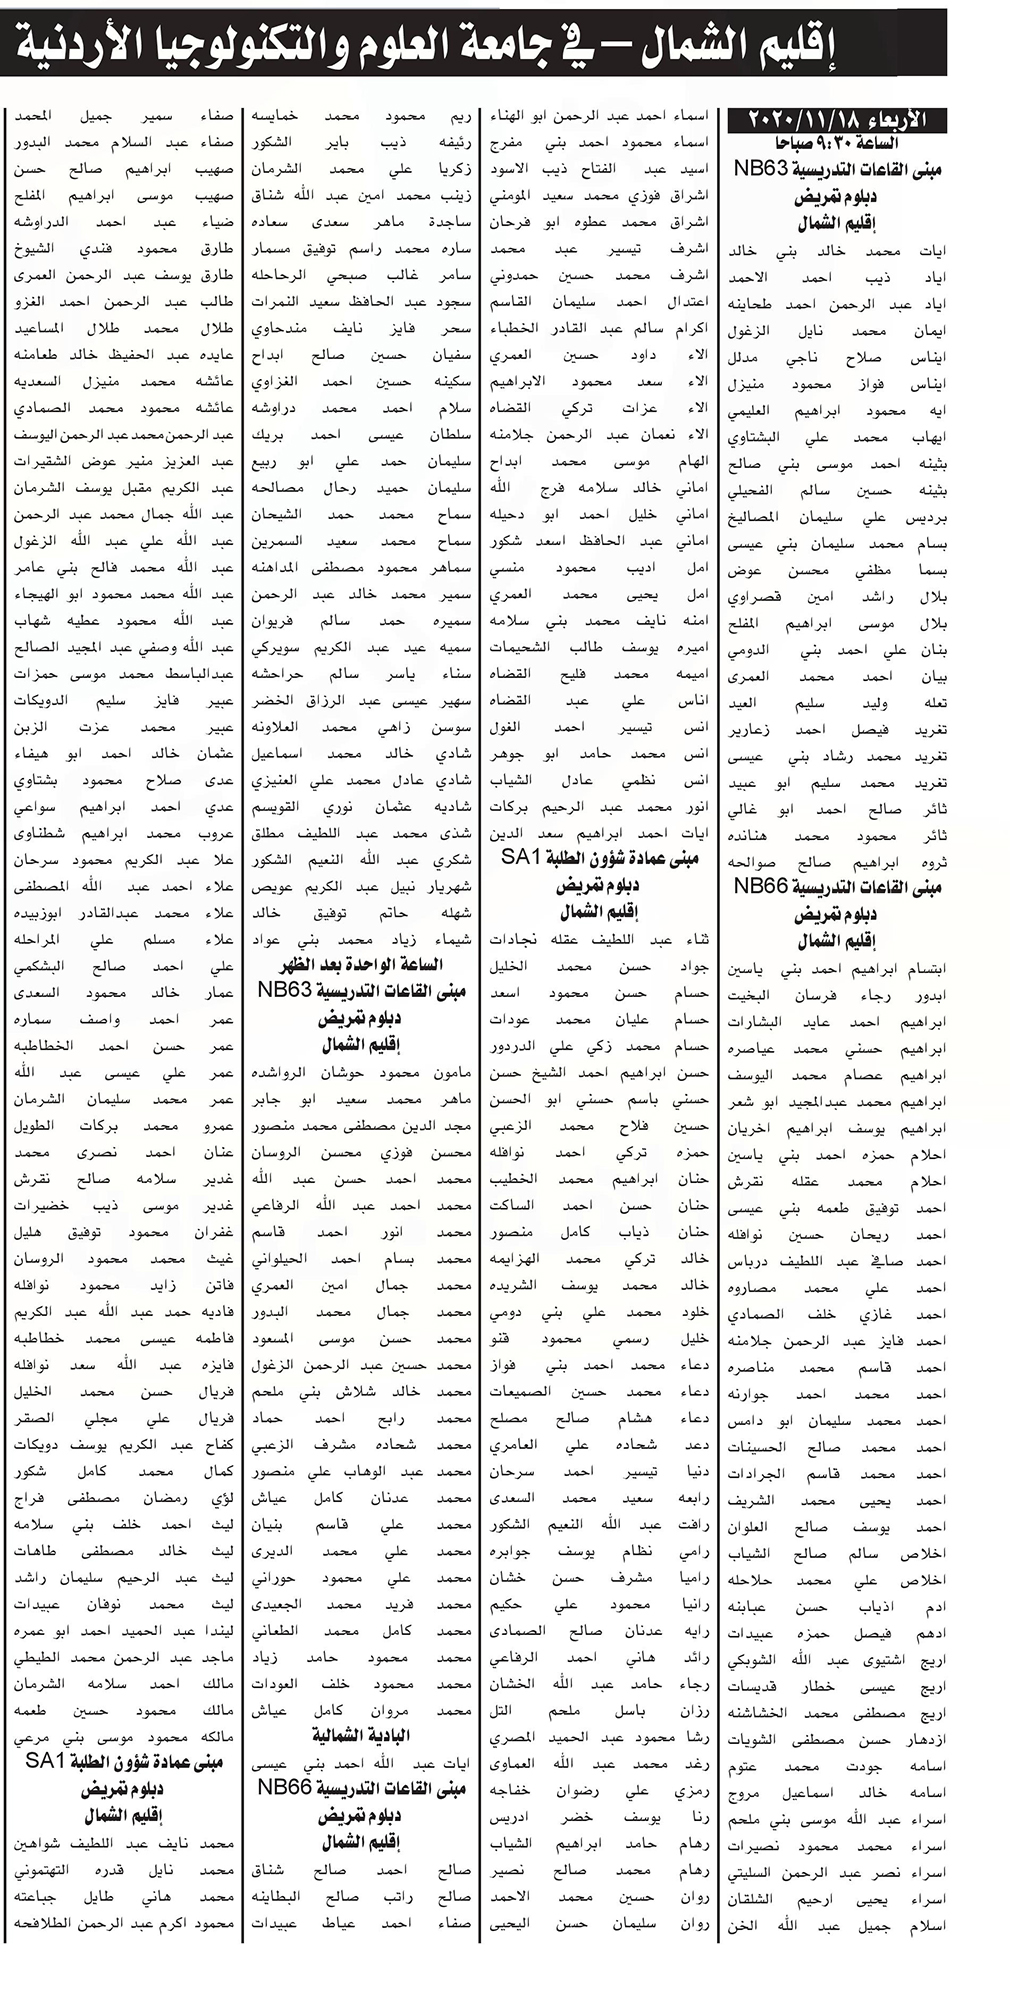 إقليم الشمال – في جامعة العلوم والتكنولوجيا الأردنية
الأربعاء ٢٠٢٠/١١/١٨
الساعة ٩:٣٠ صباحا
مبنى القاعات التدريسية NB63
دبلوم تمريض
إقليم الشمال
ايات محمد خالد بني خالد
اياد ذيب احمد الاحمد
اياد عبد الرحمن احمد طحاينه
ايمان محمد نايل الزغول
ايناس صلاح ناجي مدلل
ايناس فواز محمود منيزل
ايه محمود ابراهيم العليمي
ايهاب محمد علي البشتاوي
بثينه احمد موسى بني صالح
بثينه حسين سالم الفحيلي
برديس علي سليمان المصاليخ
بسام محمد سليمان بني عيسى
بسما مظفي محسن عوض
بلال راشد امين قصراوي
بلال موسى ابراهيم المفلح
بنان علي احمد بني الدومي
بيان احمد محمد العمرى
تعله وليد سليم العيد
تغريد فيصل احمد زعارير
تغريد محمد رشاد بني عيسى
تغريد محمد سليم ابو عبيد
ثائر صالح احمد ابو غالي
ثائر محمود محمد هنانده
ثروه ابراهيم صالح صوالحه
مبنى القاعات التدريسية NB66
دبلوم تمريض
إقليم الشمال
ابتسام ابراهيم احمد بني ياسين
ابدور رجاء فرسان البخيت
ابراهيم احمد عايد البشارات
ابراهيم حسني محمد عياصره
ابراهيم عصام محمد اليوسف
ابراهيم محمد عبدالمجيد ابو شعر
ابراهيم يوسف ابراهيم اخريان
احلام حمزه احمد بني ياسين
احلام محمد عقله نقرش
احمد توفيق طعمه بني عيسى
احمد ريحان حسين نوافله
احمد صافي عبد اللطيف درباس
احمد علي محمد مصاروه
احمد غازي خلف الصمادي
احمد فايز عبد الرحمن جلامنه
احمد قاسم محمد مناصره
احمد محمد احمد جوارنه
احمد محمد سليمان ابو دامس
احمد محمد صالح الحسينات
احمد محمد قاسم الجرادات
احمد يحيى محمد الشريف
احمد يوسف صالح العلوان
اخلاص سالم صالح الشياب
اخلاص علي محمد حلاحله
ادم اذياب حسن عبابنه
ادهم فيصل حمزه عبيدات
اريج اشتيوى عبد الله الشوبكي
اريج عيسى خطار قديسات
اريج مصطفى محمد الخشاشنه
ازدهار حسن مصطفى الشويات
اسامه جودت محمد عتوم
اسامه خالد اسماعيل مروج
اسراء عبد الله موسى بني ملحم
اسراء محمد محمود نصيرات
اسراء نصر عبد الرحمن السليتي
اسراء يحيى ارحيم الشلقان
اسلام جميل عبد الله الخن
اسماء احمد عبد الرحمن ابو الهناء
اسماء محمود احمد بني مفرج
اسيد عبد الفتاح ذيب الاسود
اشراق فوزي محمد سعيد المومني
اشراق محمد عطوه ابو فرحان
اشرف تيسير عبد محمد
اشرف محمد حسين حمدوني
اعتدال احمد سليمان القاسم
اكرام سالم عبد القادر الخطباء
الاء داود حسين العمري
الاء سعد محمود الابراهيم
الاء عزات تركي القضاه
الاء نعمان عبد الرحمن جلامنه
الهام موسى محمد ابداح
اماني خالد سلامه فرج الله
اماني خليل احمد ابو دحيله
اماني عبد الحافظ اسعد شكور
امل اديب محمود منسي
امل يحيى محمد العمري
امنه نايف محمد بني سلامه
اميره يوسف طالب الشحيمات
اميمه محمد فليح القضاه
اناس علي عبد القضاه
انس تيسير احمد الغول
انس محمد حامد ابو جوهر
انس نظمي عادل الشياب
انور محمد عبد الرحيم بركات
ايات احمد ابراهيم سعد الدين
مبنى عمادة شؤون الطلبة SA1
دبلوم تمريض
إقليم الشمال
ثناء عبد اللطيف عقله نجادات
جواد حسن محمد الخليل
حسام حسن محمود اسعد
حسام عليان محمد عودات
حسام محمد زكي علي الدردور
حسن ابراهيم احمد الشيخ حسن
حسني باسم حسني ابو الحسن
حسين فلاح محمد الزعبي
حمزه تركي احمد نوافله
حنان ابراهيم محمد الخطيب
حنان حسن احمد الساكت
حنان ذياب كامل منصور
خالد تركي محمد الهزايمه
خالد محمد يوسف الشريده
خلود محمد علي بني دومي
خليل رسمي محمود قنو
دعاء محمد احمد بني فواز
دعاء محمد حسين الصميعات
دعاء هشام صالح مصلح
دعد شحاده علي العامري
دنيا تيسير احمد سرحان
رابعه سعيد محمد السعدى
رافت عبد الله النعيم الشكور
رامي نظام يوسف جوابره
راميا مشرف حسن خشان
رانيا محمود علي حكيم
رايه عدنان صالح الصمادى
رائد هاني احمد الرفاعي
رجاء حامد عبد الله الخشان
رزان باسل ملحم التل
رشا محمود عبد الحميد المصري
رغد محمد عبد الله العماوى
رمزي علي رضوان خفاجه
رنا يوسف خضر ادريس
رهام حامد ابراهيم الشياب
رهام محمد صالح نصير
روان حسين محمد الاحمد
روان سليمان حسن اليحيى
ريم محمود محمد خمايسه
رئيفه ذيب باير الشكور
زكريا علي محمد الشرمان
زينب محمد امين عبد الله شناق
ساجدة ماهر سعدى سعاده
ساره محمد راسم توفيق مسمار
سامر غالب صبحي الرحاحله
سجود عبد الحافظ سعيد النمرات
سحر فايز نايف مندحاوي
سفيان حسين صالح ابداح
سكينه حسين احمد الغزاوي
سلام احمد محمد دراوشه
سلطان عيسى احمد بريك
سليمان حمد علي ابو ربيع
سليمان حميد رحال مصالحه
سماح محمد حمد الشيحان
سماح محمد سعيد السمرين
سماهر محمود مصطفى المداهنه
سمير محمد خالد عبد الرحمن
سميره حمد سالم فريوان
سميه عيد عبد الكريم سويركي
سناء ياسر سالم حراحشه
سهير عيسى عبد الرزاق الخضر
سوسن زاهي محمد العلاونه
شادي خالد محمد اسماعيل
شادي عادل محمد علي العنيزي
شاديه عثمان نوري القويسم
شذى محمد عبد اللطيف مطلق
شكري عبد الله النعيم الشكور
شهريار نبيل عبد الكريم عويص
شهله حاتم توفيق خالد
شيماء زياد محمد بني عواد
الساعة الواحدة بعد الظهر
مبنى القاعات التدريسية NB63
دبلوم تمريض
إقليم الشمال
مامون محمود حوشان الرواشده
ماهر محمد سعيد ابو جابر
مجد الدين مصطفى محمد منصور
محسن فوزي محسن الروسان
محمد احمد حسن عبد الله
محمد احمد عبد الله الرفاعي
محمد انور احمد قاسم
محمد بسام احمد الحيلواني
محمد جمال امين العمري
محمد جمال محمد البدور
محمد حسن موسى المسعود
محمد حسين عبد الرحمن الزغول
محمد خالد شلاش بني ملحم
محمد رابح احمد حماد
محمد شحاده مشرف الزعبي
محمد عبد الوهاب علي منصور
محمد عدنان كامل عياش
محمد علي قاسم بنيان
محمد علي محمد الديرى
محمد علي محمود حوراني
محمد فريد محمد الجعيدى
محمد كامل محمد الطعاني
محمد محمود حامد زياد
محمد محمود خلف العودات
محمد مروان كامل عياش
البادية الشمالية
ايات عبد الله احمد بني عيسى
مبنى القاعات التدريسية NB66
دبلوم تمريض
إقليم الشمال
صالح احمد صالح شناق
صالح راتب صالح البطاينه
صفاء احمد عياط عبيدات
صفاء سمير جميل المحمد
صفاء عبد السلام محمد البدور
صهيب ابراهيم صالح حسن
صهيب موسى ابراهيم المفلح
ضياء عبد احمد الدراوشه
طارق محمود فندي الشيوخ
طارق يوسف عبد الرحمن العمرى
طالب عبد الرحمن احمد الغزو
طلال محمد طلال المساعيد
عايده عبد الحفيظ خالد طعامنه
عائشه محمد منيزل السعديه
عائشه محمود محمد الصمادي
عبد الرحمن محمد عبد الرحمن اليوسف
عبد العزيز منير عوض الشقيرات
عبد الكريم مقبل يوسف الشرمان
عبد الله جمال محمد عبد الرحمن
عبد الله علي عبد الله الزغول
عبد الله محمد فالح بني عامر
عبد الله محمد محمود ابو الهيجاء
عبد الله محمود عطيه شهاب
عبد الله وصفي عبد المجيد الصالح
عبدالباسط محمد موسى حمزات
عبير فايز سليم الدويكات
عبير محمد عزت الزبن
عثمان خالد احمد ابو هيفاء
عدى صلاح محمود بشتاوي
عدي احمد ابراهيم سواعي
عروب محمد ابراهيم شطناوى
علا عبد الكريم محمود سرحان
علاء احمد عبد الله المصطفى
علاء محمد عبدالقادر ابوزبيده
علاء مسلم علي المراحله
علي احمد صالح البشكمي
عمار خالد محمود السعدى
عمر احمد واصف سماره
عمر حسن احمد الخطاطبه
عمر علي عيسى عبد الله
عمر محمد سليمان الشرمان
عمرو محمد بركات الطويل
عنان احمد نصرى محمد
غدير سلامه صالح نقرش
غدير موسى ذيب خضيرات
غفران محمود توفيق هليل
غيث محمد محمود الروسان
فاتن زايد محمود نوافله
فاديه حمد عبد الله عبد الكريم
فاطمه عيسى محمد خطاطبه
فايزه عبد الله سعد نوافله
فريال حسن محمد الخليل
فريال علي مجلي الصقر
كفاح عبد الكريم يوسف دويكات
كمال محمد كامل شكور
لؤي رمضان مصطفى فراج
ليث احمد خلف بني سلامه
ليث خالد مصطفى طاهات
ليث عبد الرحيم سليمان راشد
ليث محمد نوفان عبيدات
ليندا عبد الحميد احمد ابو عمره
ماجد عبد الرحمن محمد الطيطي
مالك احمد سلامه الشرمان
مالك محمود حسين طعمه
مالكه محمود موسى بني مرعي
مبنى عمادة شؤون الطلبة SA1
دبلوم تمريض
إقليم الشمال
محمد نايف عبد اللطيف شواهين
محمد نايل قدره التهتموني
محمد هاني طايل جباعته
محمود اكرم عبد الرحمن الطلافحه